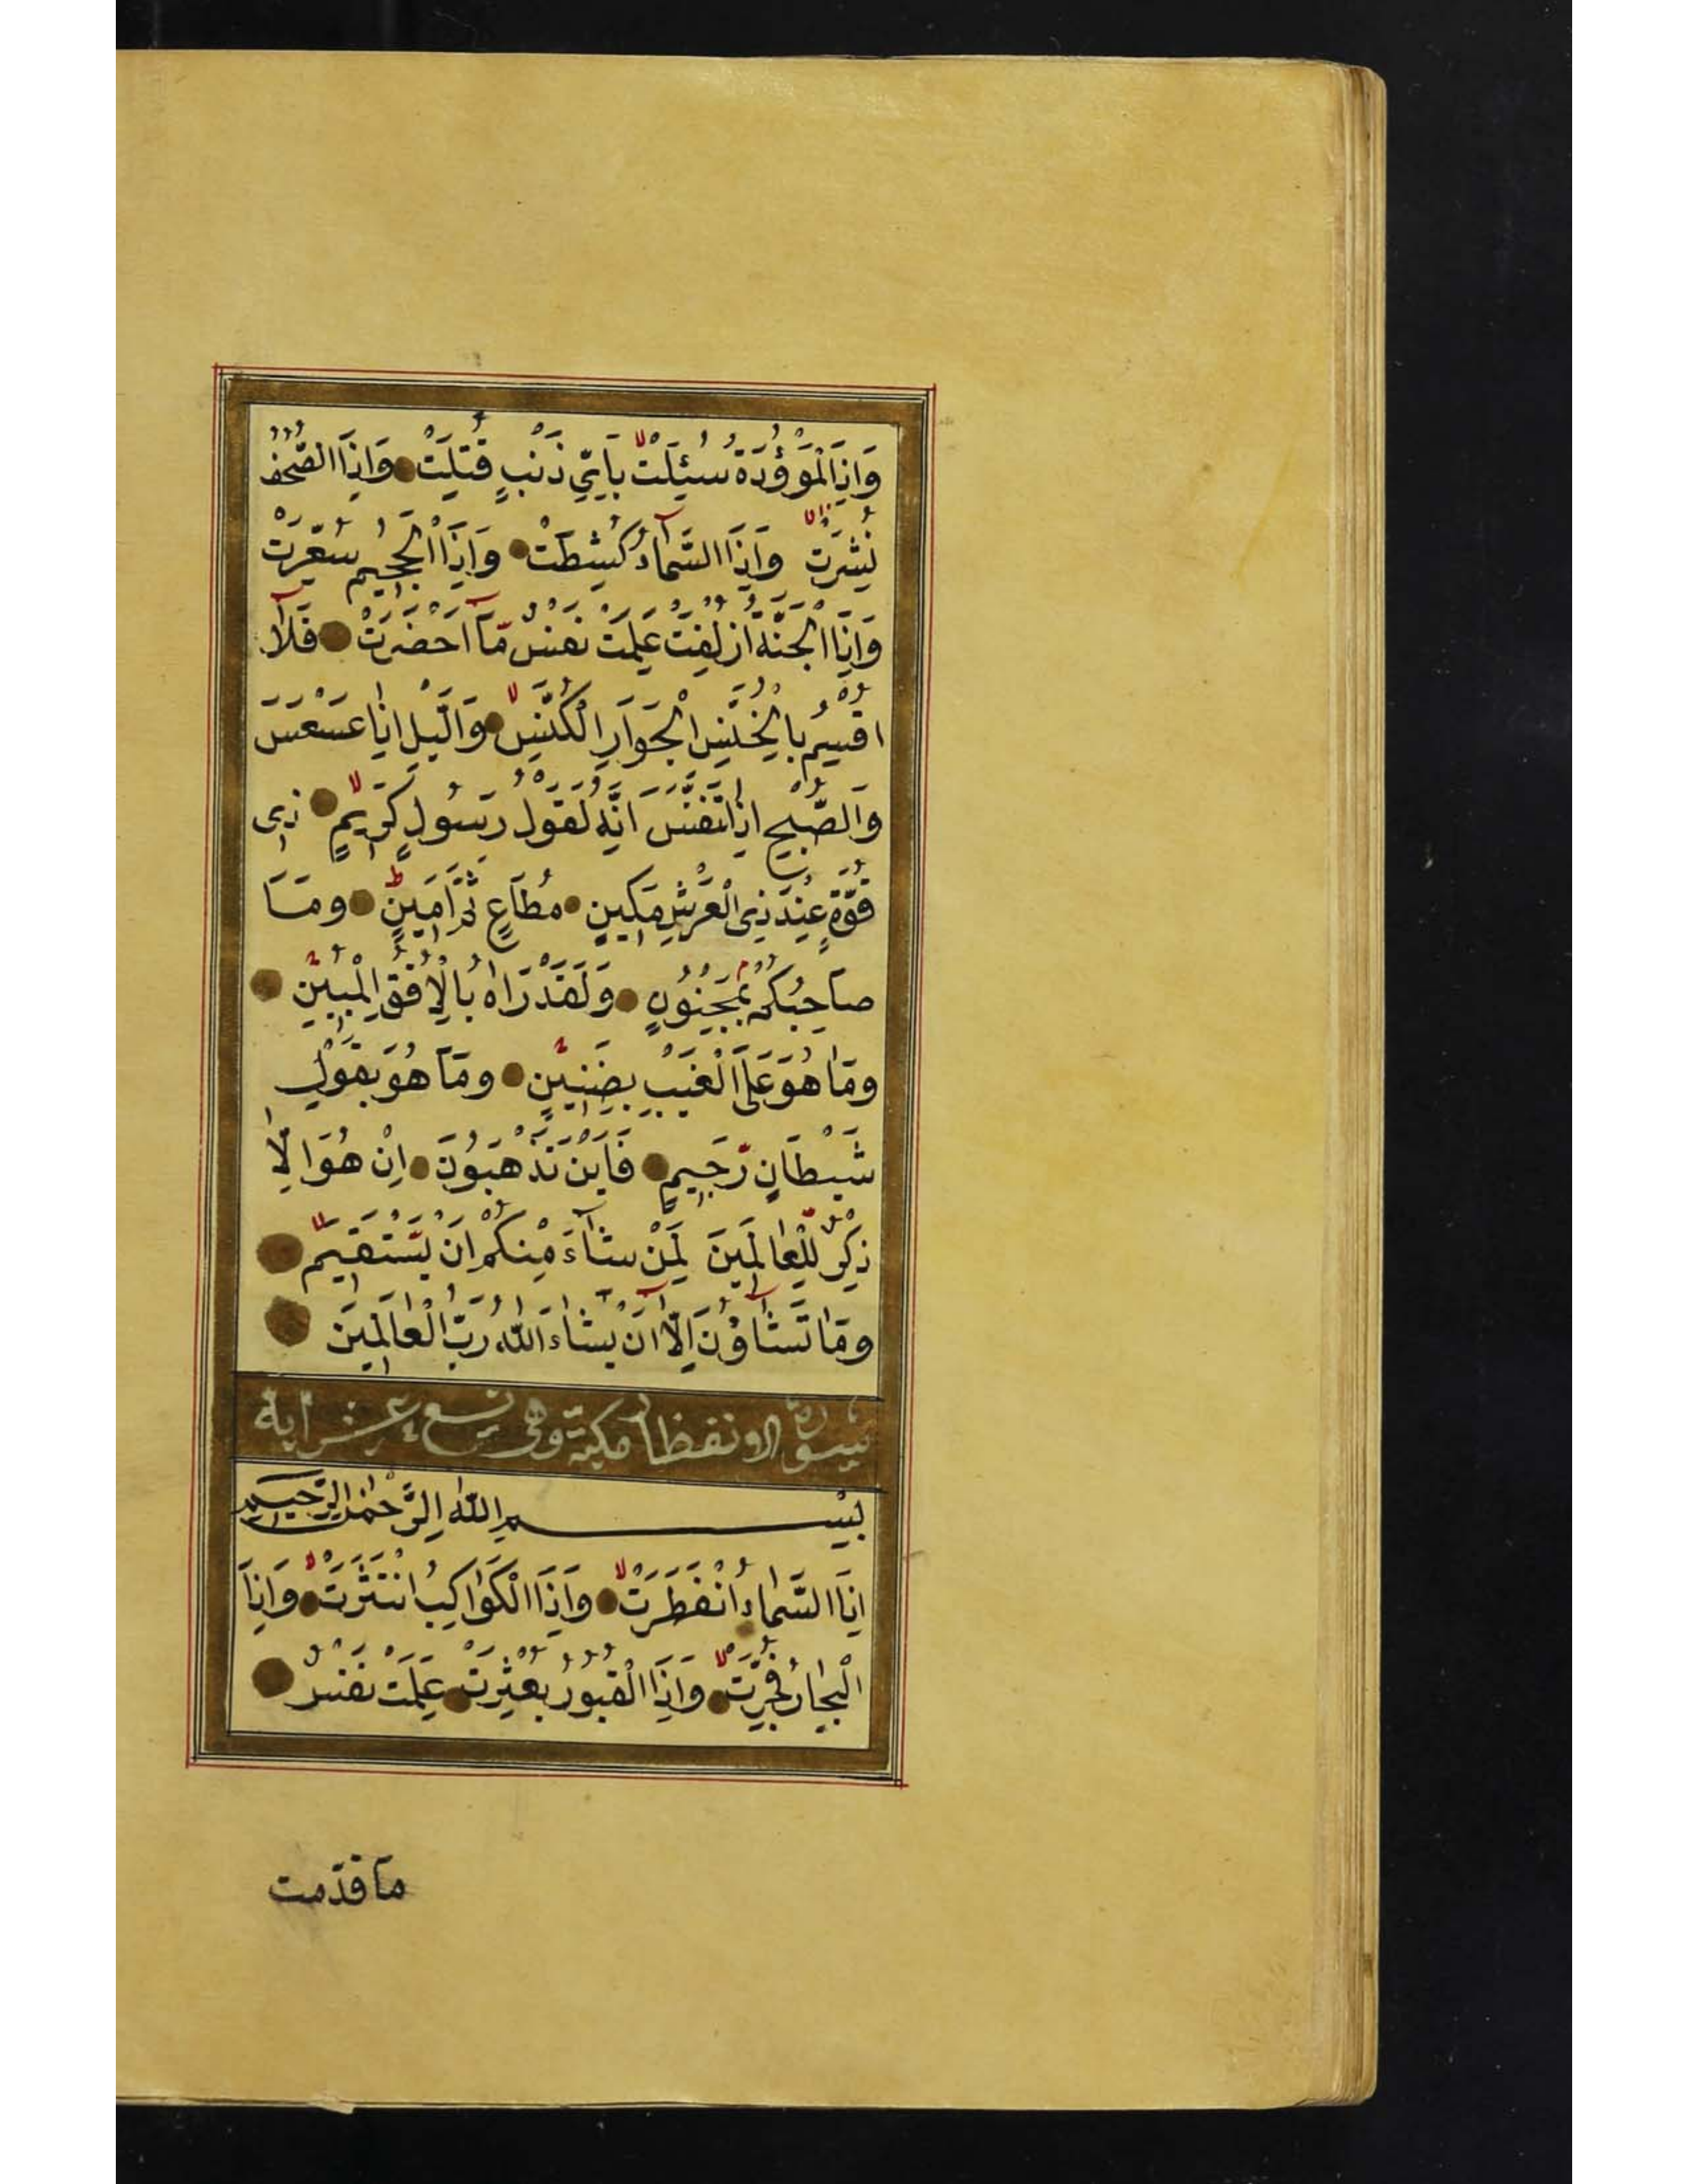 وَاِذَا الْمَوْؤُدَةُ سُئِلَتْ بِاَيِّ ذَنْبٍ قُتِلَتْ وَاِذَا الصُّحُفُ
نُشِرَتْ وَاِذَا السَّمَآءُ كُشِطَتْ وَاِذَا الْجَحِيمُ سُعِّرَتْ
وَاِذَا الْجَنَّةُ اُزْلِفَتْ عَلِمَتْ نَفْسٌ مَّآ اَحْضَرَتْ فَلَآ
اُقْسِمُ بِالْخُنَّسِ الْجَوَارِ الْكُنَّسِ وَالَّيْلِ اِذَا عَسْعَسَ
وَالصُّبْحِ اِذَا تَنَفَّسَ اِنَّهُ لَقَوْلُ رَسُولٍ كَرِيمٍ ذِى
قُوَّةٍ عِنْدَ ذِى الْعَرْشِ مَكِينٍ مُطَاعٍ ثَمَّ اَمِينٍ وَمَا
صَاحِبُكُمْ بِمَجْنُونٍ وَلَقَدْ رَاٰهُ بِالْاُفُقِ الْمُبِينِ
وَمَا هُوَ عَلَى الْغَيْبِ بِضَنِينٍ وَمَا هُوَ بِقَوْلِ
شَيْطَانٍ رَّجِيمٍ فَاَيْنَ تَذْهَبُونَ اِنْ هُوَ اِلَّا
ذِكْرٌ لِّلْعَالَمِينَ لِمَنْ شَآءَ مِنْكُمْ اَنْ يَّسْتَقِيمَ
وَمَا تَشَآؤُنَ اِلَّآ اَنْ يَشَآءَ اللّٰهُ رَبُّ الْعَالَمِينَ
سورة الانفطار مكية وهى تسع عشر اية
بِسْمِ اللّٰهِ الرَّحْمٰنِ الرَّحِيمِ
اِذَا السَّمَاءُ انْفَطَرَتْ وَاِذَا الْكَوَاكِبُ انْتَثَرَتْ وَاِذَا
الْبِحَارُ فُجِّرَتْ وَاِذَا الْقُبُورُ بُعْثِرَتْ عَلِمَتْ نَفْسٌ
مَا قدّمت